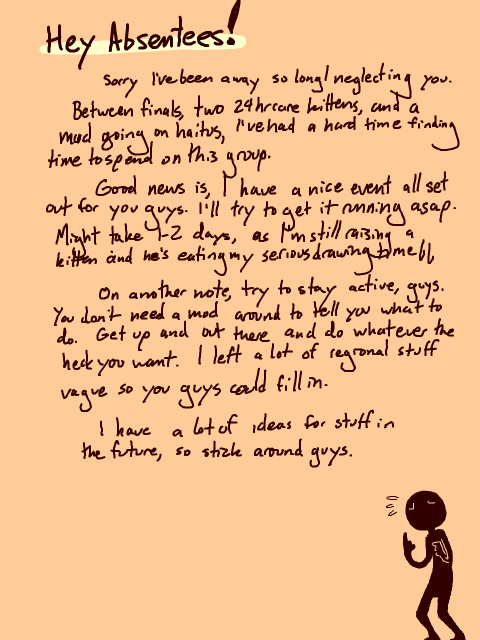 Hey Absentees!
Sorry I've been away so long/neglecting you.
Between finals, two 24hrcare kittens, and a
mod going on haitus, I've had a hard time finding
time to spend on this group.
Good news is, I have a nice event all set
out for you guys. I'll try to get it running asap.
Might take 1-2 days, as I'm still raising a
kitten and he's eating my serious drawing time
On another note, try to stay active, guys.
You don't need a mod around to tell you what to
do. Get up and out there and do whatever the
heck you want. I left a lot of regional stuff
vague so you guys could fill in.
I have a lot of ideas for stuff in
the future, so stick around guys.